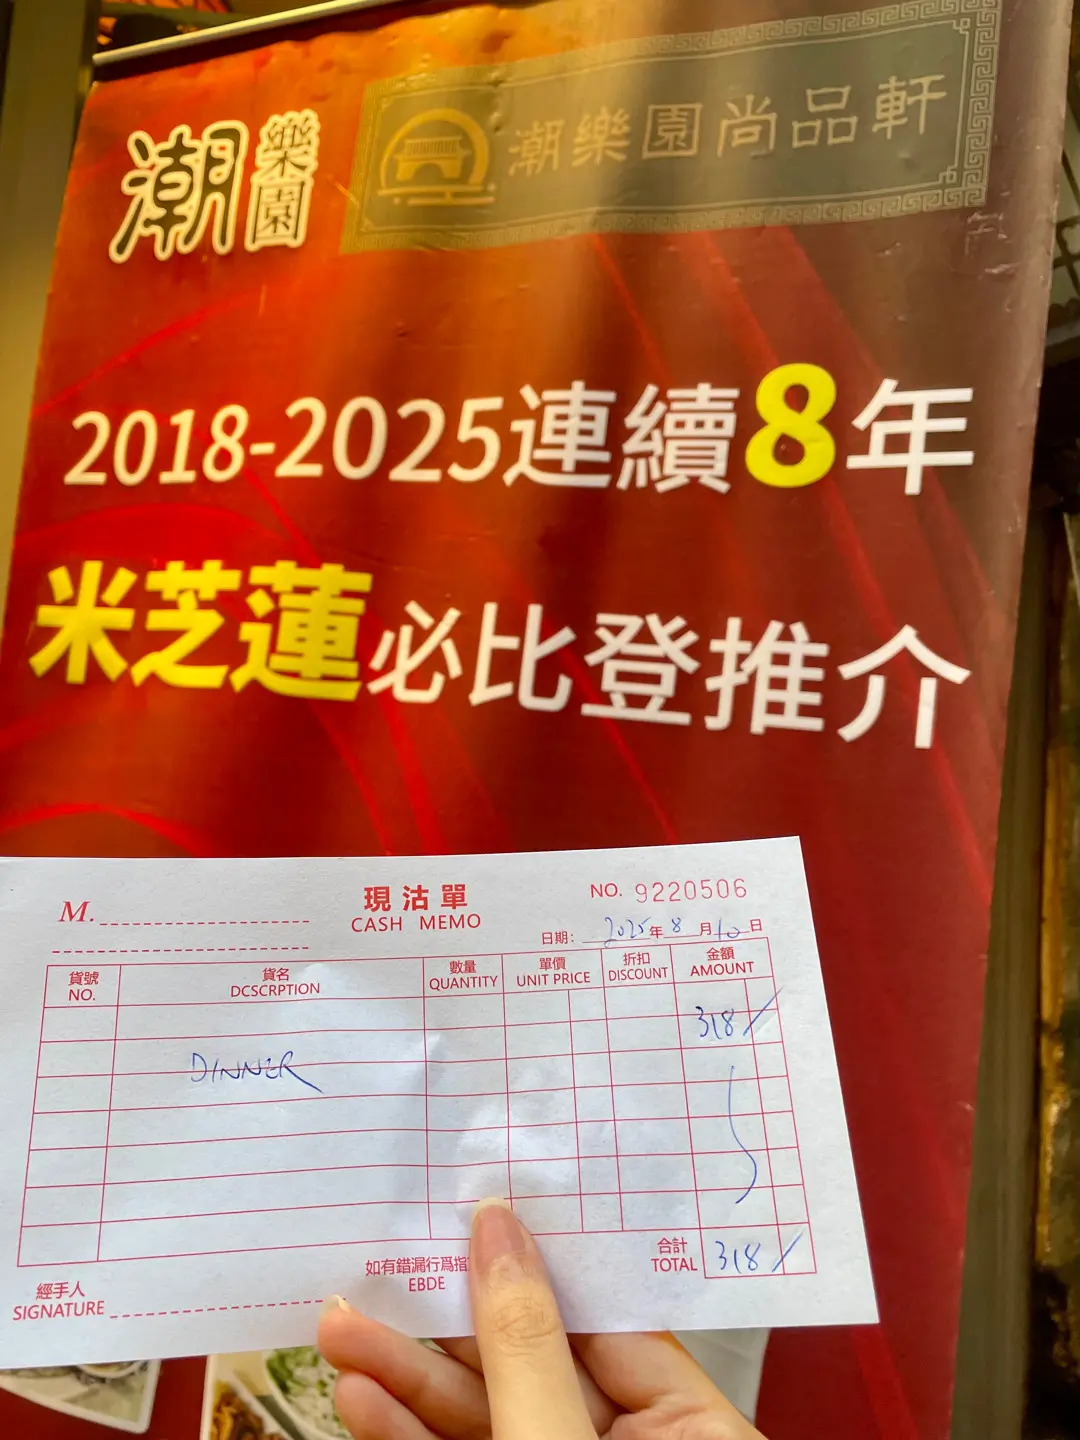 潮樂園
潮樂園尚品軒
2018-2025連續8年
米芝蓮必比登推介
M.
現沽單
CASH MEMO
NO. 9220506
日期: 2025年8月10日
貨號
NO.
貨名
DCSCRPTION
數量
QUANTITY
單價
UNIT PRICE
折扣
DISCOUNT
金額
AMOUNT
318/
DINNER
合計
TOTAL
318/
如有錯漏行爲指
EBDE
經手人
SIGNATURE